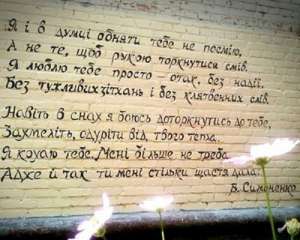 Я і в думці обняти тебе не посмію,
А не те, щоб рукою торкнутися смів.
Я люблю тебе просто – отак, без надії,
Без тужливих зітхань і без клятвених слів.
Навіть в снах я боюсь доторкнутись до тебе,
Захмеліть, одуріти від твого тепла.
Я кохаю тебе. Мені більше не треба.
Адже й так ти мені стільки щастя дала.
В. Симоненко